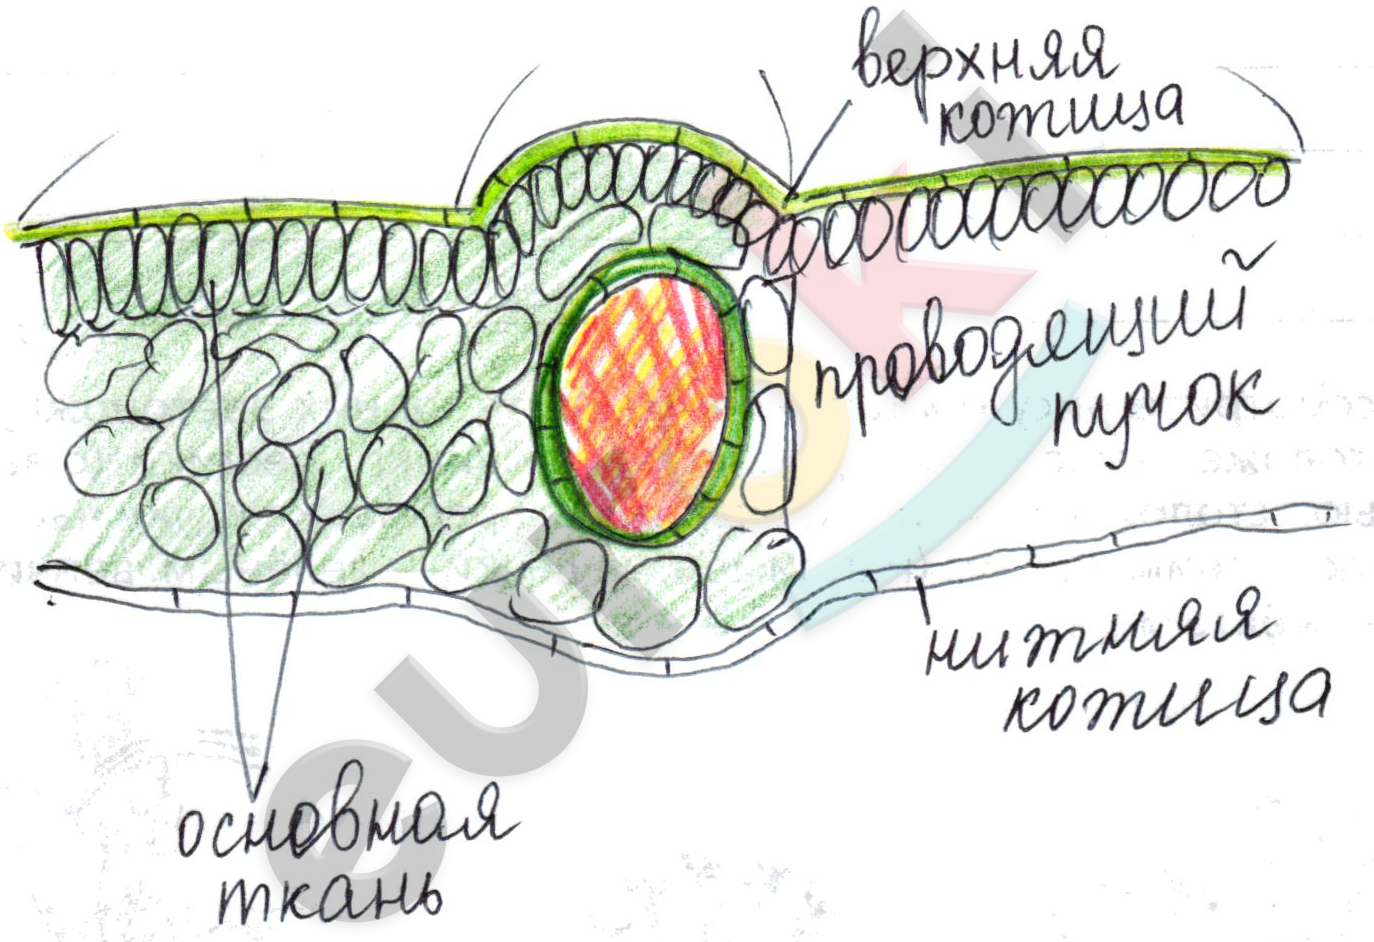 верхняя
кожица
проводящий
пучок
нижняя
кожица
основная
ткань
euroki